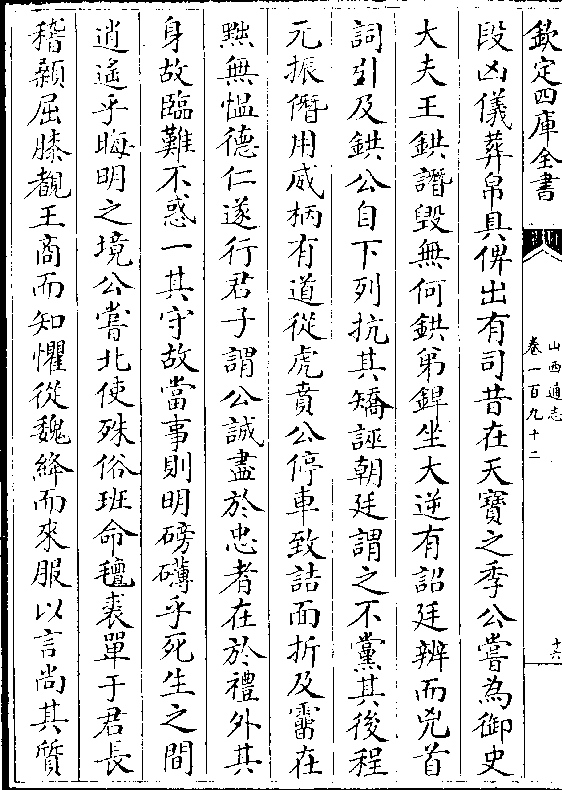 欽定四庫全書
山西通志
卷一百九十二
十六
段凶儀葬帛具俾出有司昔在天寶之季公嘗為御史
大夫王鉷譖毀無何鉷弟銲坐大逆有詔廷辨而兇首
詞引及鉷公自下列抗其矯誣朝廷謂之不黨其後程
元振僭用威柄有道從虎賁公停車致詰面折及霤在
黜無慍德仁遂行君子謂公誠盡於忠者在於禮外其
身故臨難不惑一其守故當事則明磅礴乎死生之間
逍遙乎晦明之境公嘗北使殊俗班命氊裘單于君長
稽顙屈膝覩王商而知懼從魏絳而來服以言尚其質